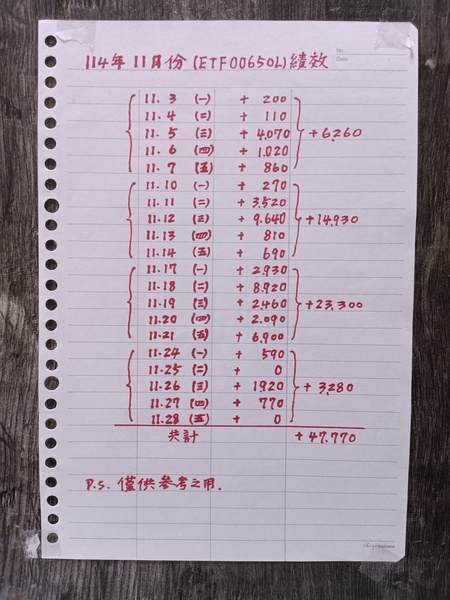 No.
Date
114年11月份(ETF00650L)績效
11.3 (一) + 200
11.4 (二) + 110
11.5 (三) + 4,070 +6,260
11.6 (四) + 1,020
11.7 (五) + 860
11.10 (一) + 270
11.11 (二) + 3,520
11.12 (三) + 9,640 +14,930
11.13 (四) + 810
11.14 (五) + 690
11.17 (一) + 2,930
11.18 (二) + 8,920
11.19 (三) + 2,460 +23,300
11.20 (四) + 2,090
11.21 (五) + 6,900
11.24 (一) + 590
11.25 (二) + 0
11.26 (三) + 1920 + 3,280
11.27 (四) + 770
11.28 (五) + 0
共計 + 47,770
P.S. 僅供參考之用.